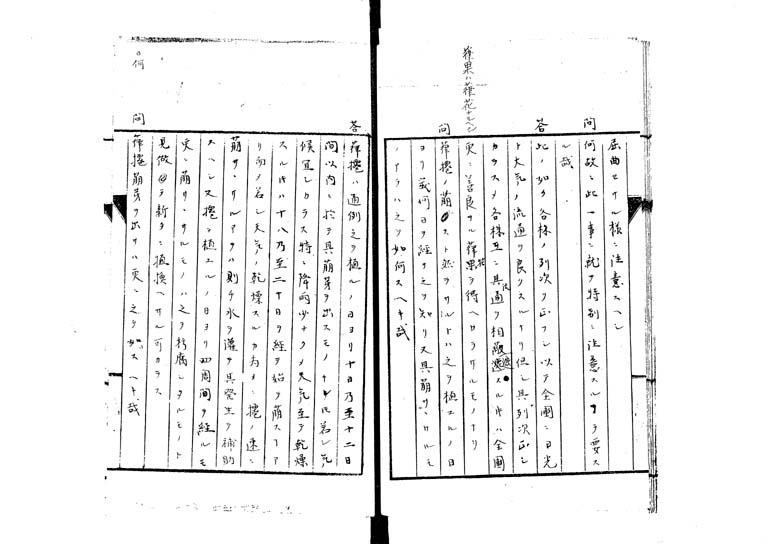 屈曲セサル様ニ注意スヘシ
問 何故ニ此一事ニ就テ特別ニ注意スルヲ要ス
ル哉
答 此ノ如ク各株ノ列次ヲ正フシ以テ全圃ニ日光
ト大気ノ流通ヲ良クスルナリ但シ其列次正シ
カラスメ各株互ニ其通ヲ相遮スルトキハ全圃
更ニ善良サル葎花ヲ得ヘカラサルモノナリ
葎果ハ葎花ナルヘシ
問 葎捲ノ萌スト然ラサルトハ之ヲ植ユルノ日
ヨリ幾何日ヲ経テ之ヲ知リ又其萌サヽルモ
ノアラハ之ヲ如何スヘキ哉
答 葎捲ハ通例之ヲ植ルノ日ヨリ十日乃至十二日
間以内ニ於テ其萌芽ヲ出スモノナレトモ若シ気
候宜シカラス特ニ降雨少ナクメ天気至テ乾燥
スルトキハ十八乃至二十日ヲ経テ始テ萌スコトア
リ而メ若シ天気ノ乾燥スルカ為メニ捲ノ速ニ
萌サヽルアラハ則チ水ヲ灌テ其発生ヲ補助
スヘシ又捲ヲ植エルノ日ヨリ四周間ヲ経ルモ
更ニ萌サヽルモノハ之ヲ朽腐シタルモノト
見做シテ新タニ植換ヘサル可カラス
問 葎捲萌芽ヲ出サハ更ニ之ヲ如スヘキ哉
何